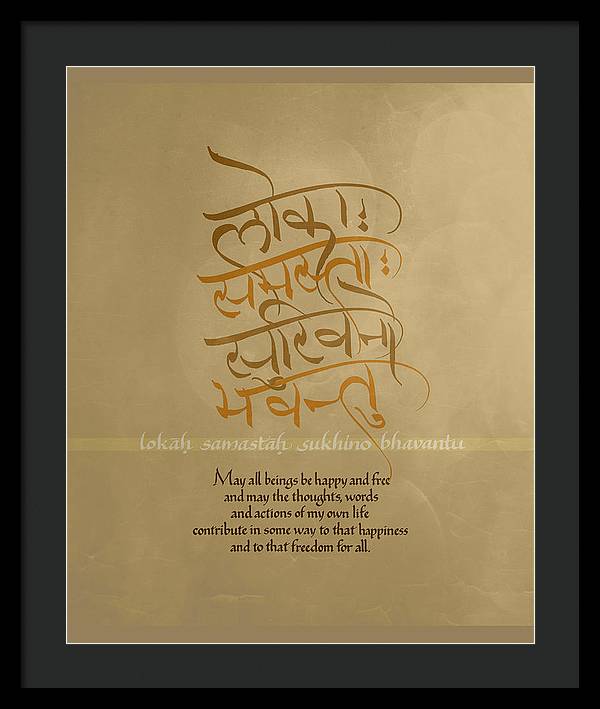 लोकाः
समस्ताः
सुखिनो
भवन्तु
lokaḥ samastaḥ sukhino bhavantu
May all beings be happy and free
and may the thoughts, words
and actions of my own life
contribute in some way to that happiness
and to that freedom for all.